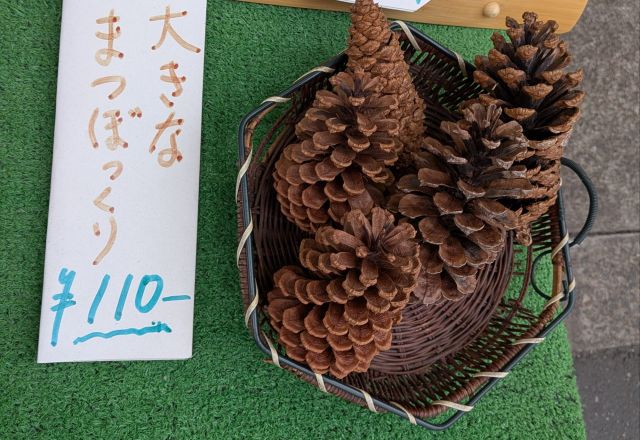 大きな
まつぼっくり
¥110-